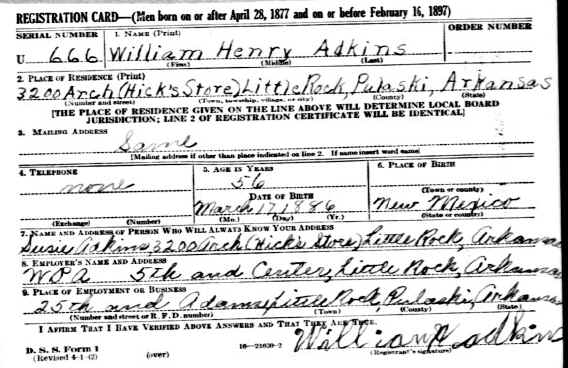 REGISTRATION CARD—(Men born on or after April 28, 1877 and on or before February 16, 1897)
SERIAL NUMBER 1. NAME (Print) ORDER NUMBER
U 666 William Henry Adkins
(First) (Middle) (Last)
2. PLACE OF RESIDENCE (Print)
3200 Arch (Hick's Store) Little Rock, Pulaski, Arkansas
(Number and street) (Town, township, village, or city) (County) (State)
[THE PLACE OF RESIDENCE GIVEN ON THE LINE ABOVE WILL DETERMINE LOCAL BOARD
JURISDICTION; LINE 2 OF REGISTRATION CERTIFICATE WILL BE IDENTICAL]
3. MAILING ADDRESS
Same
[Mailing address if other than place indicated on line 2. If same insert word same]
4. TELEPHONE 5. AGE IN YEARS 6. PLACE OF BIRTH
none 56
DATE OF BIRTH (Town or county)
March 17 1886 New Mexico
(Exchange) (Number) (Mo.) (Day) (Yr.) (State or country)
7. NAME AND ADDRESS OF PERSON WHO WILL ALWAYS KNOW YOUR ADDRESS
Susie Adkins, 3200 Arch (Hick's Store) Little Rock, Arkansas
8. EMPLOYER'S NAME AND ADDRESS
5th and Center, Little Rock, Arkansas
9. PLACE OF EMPLOYMENT OR BUSINESS
25th and Adams, Little Rock, Pulaski, Arkansas
(Number and street or R. F. D. number) (Town) (County) (State)
I AFFIRM THAT I HAVE VERIFIED ABOVE ANSWERS AND THAT THEY ARE TRUE.
D. S. S. Form 1 William H Adkins
(Revised 4-1-42) (over) 16—21630-2 (Registrant's signature)